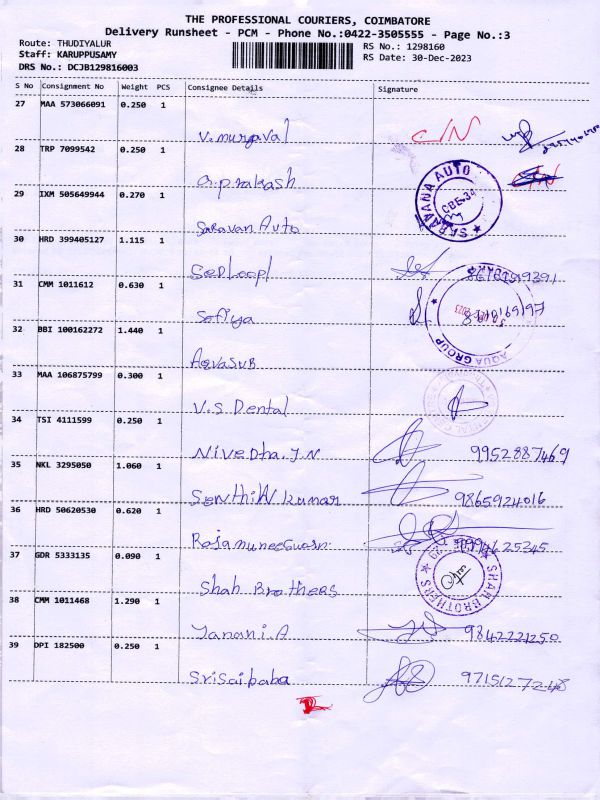 THE PROFESSIONAL COURIERS, COIMBATORE
Delivery Runsheet - PCM - Phone No.:0422-3505555 - Page No.:3
Route: THUDIYALUR
Staff: KARUPPUSAMY
DRS No.: DCJB129816003
RS No.: 1298160
RS Date: 30-Dec-2023
S No Consignment No Weight PCS Consignee Details Signature
27 MAA 573066091 0.250 1
V. murgaval C/N
28 TRP 7099542 0.250 1
a. prakash
29 IXM 505649944 0.270 1
Saravan Auto SARAVANA AUTO CBE-34
30 HRD 399405127 1.115 1
31 CMM 1011612 0.630 1
Sofiya
32 BBI 100162272 1.440 1
AQvasuB AQUA GROUP
33 MAA 106875799 0.300 1
V.S Dental
34 TSI 4111599 0.250 1
Nivedha. J.N 9952887469
35 NKL 3295050 1.060 1
Senthil kumar 9865924016
36 HRD 50620530 0.620 1
37 GDR 5333135 0.090 1
Shah Brothers SHAH BROTHERS
38 CMM 1011468 1.290 1
Janani. A 9842221250
39 DPI 182500 0.250 1
Srisaibaba 9715127248